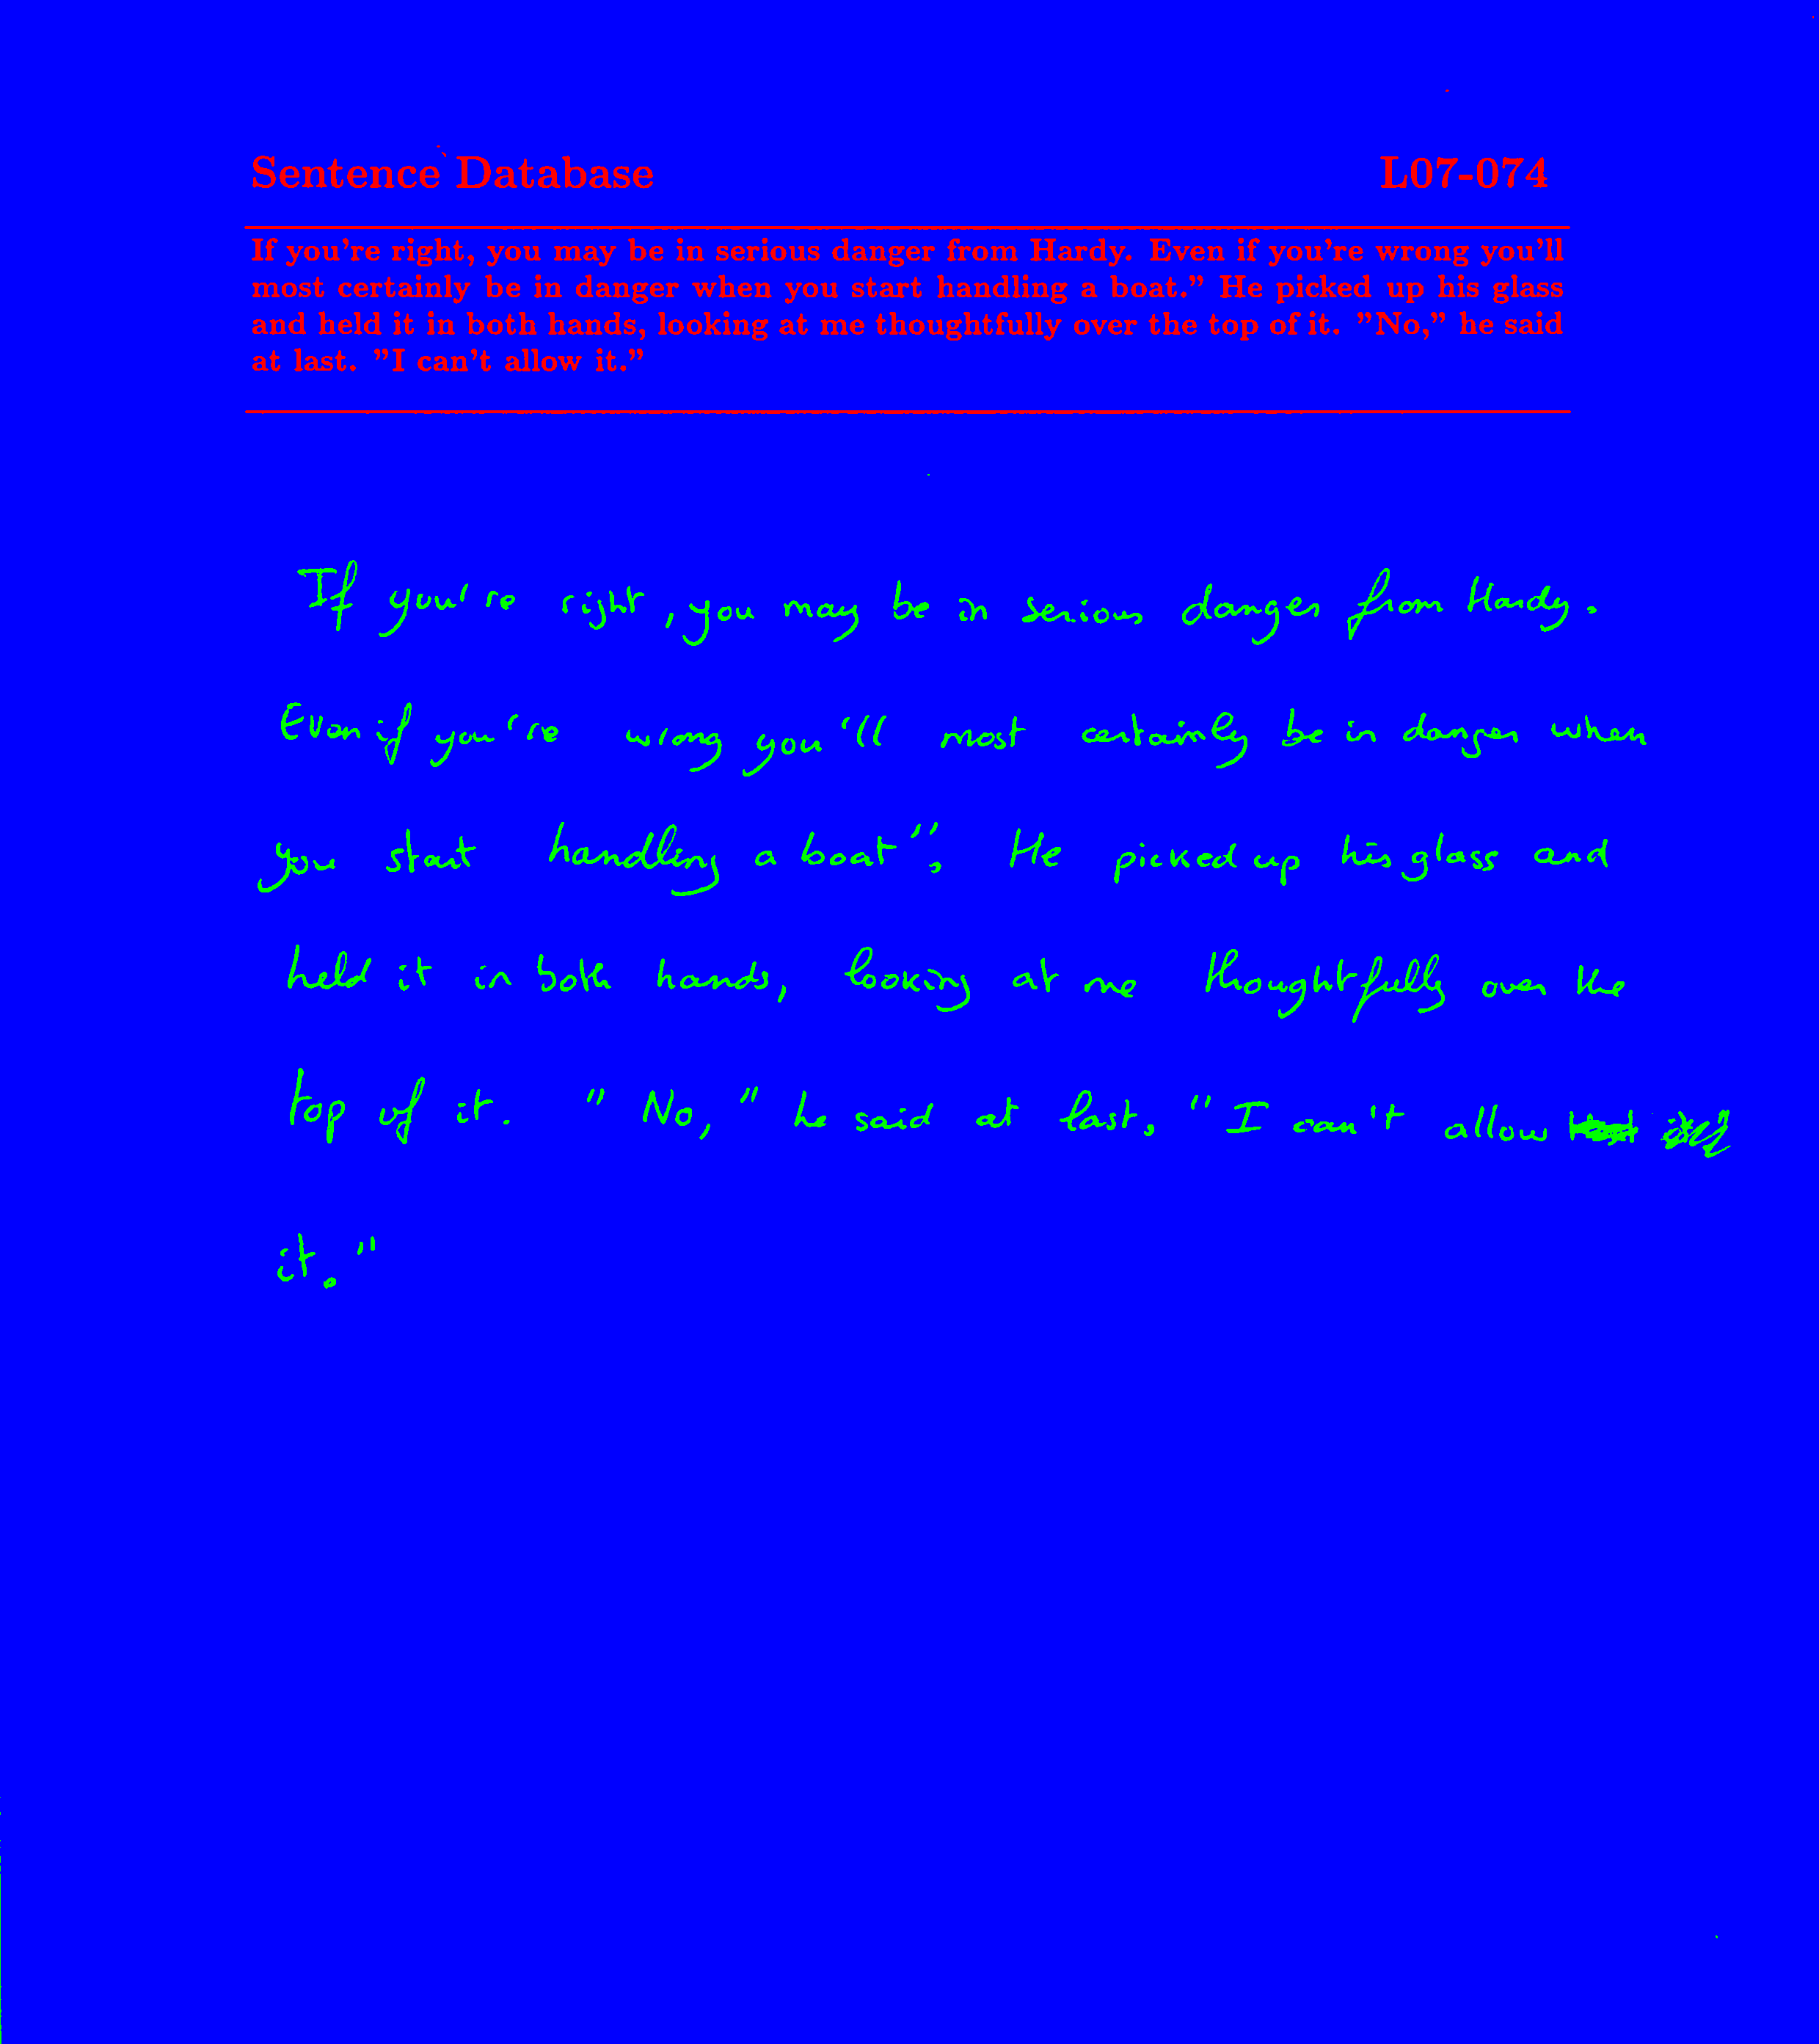 Sentence Database L07-074
If you're right, you may be in serious danger from Hardy. Even if you're wrong you'll
most certainly be in danger when you start handling a boat." He picked up his glass
and held it in both hands, looking at me thoughtfully over the top of it. "No," he said
at last. "I can't allow it."
If you're right, you may be in serious danger from Hardy.
Even if you're wrong you'll most certainly be in danger when
you start handling a boat". He picked up his glass and
held it in both hands, looking at me thoughtfully over the
top of it. "No," he said at last. "I can't allow
it."